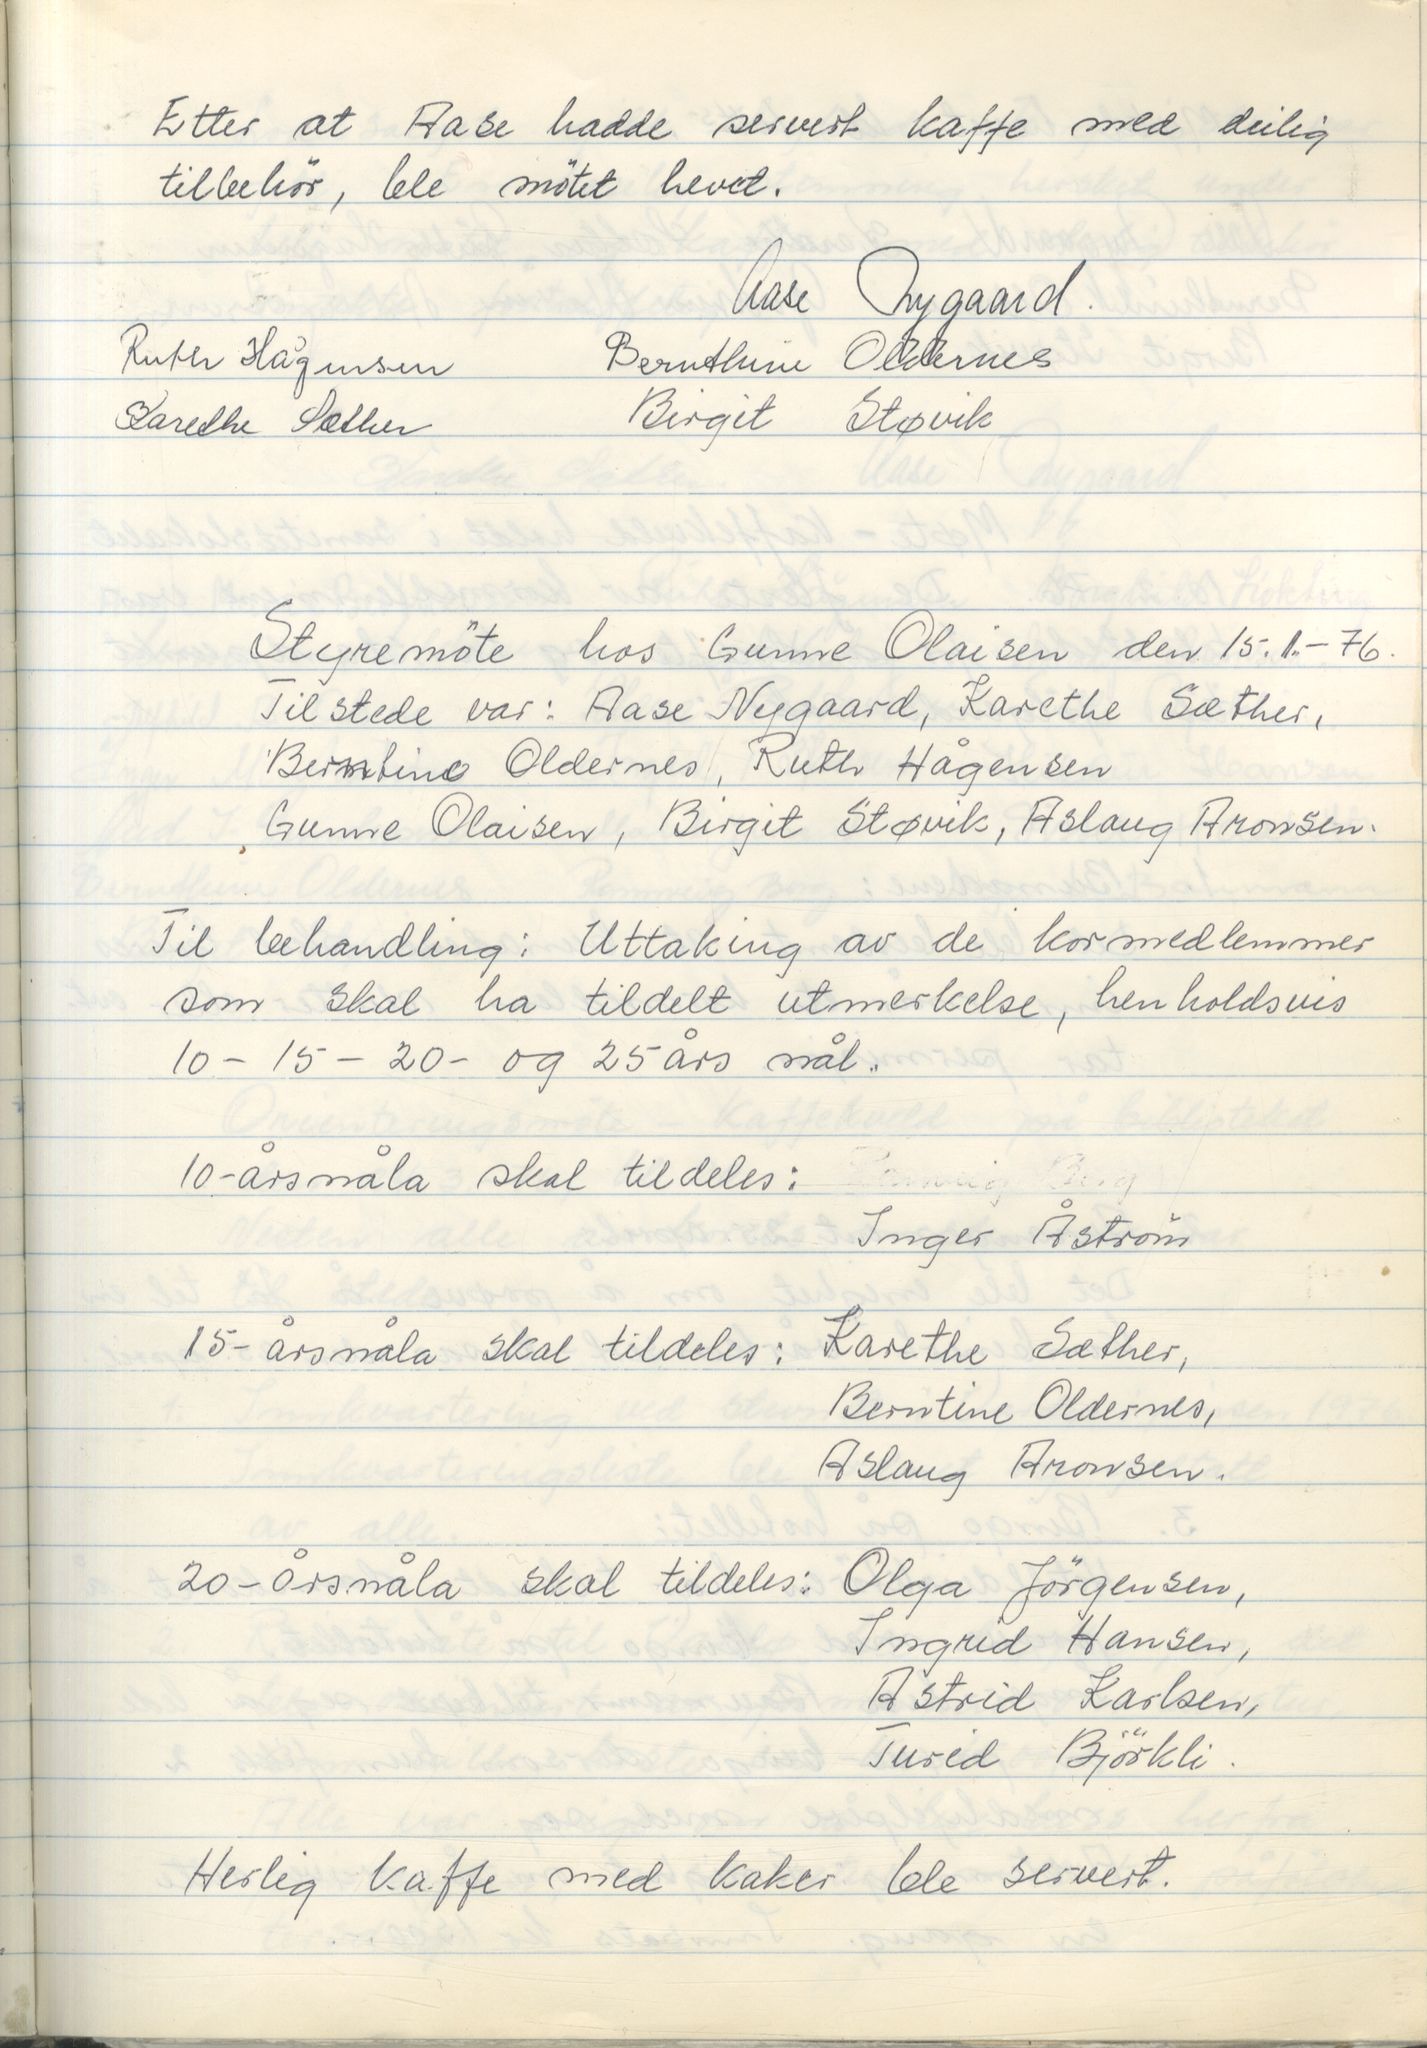 Etter at Aase hadde servert kaffe med deilig
tilbehör, ble mötet hevet.
Aase Nygaard.
Ruth Hågensen Bernthine Oldernes
Karethe Sæther Birgit Støvik
Styremöte hos Gunne Olaisen den 15.1.-76.
Tilstede var: Aase Nygaard, Karethe Sæther,
Berntine Oldernes, Ruth Hågensen
Gunne Olaisen, Birgit Støvik, Aslaug Aronsen.
Til behandling: Uttaking av de kormedlemmer
som skal ha tildelt utmerkelse, henholdsvis
10- 15- 20- og 25 års nål.
10-årsnåla skal tildeles:
Inger Åström
15-årsnåla skal tildeles: Karethe Sæther,
Berntine Oldernes,
Aslaug Aronsen.
20-årsnåla skal tildeles: Olga Jörgensen,
Ingrid Hansen,
Astrid Karlsen,
Turid Björkli.
Herlig kaffe med kaker ble servert.